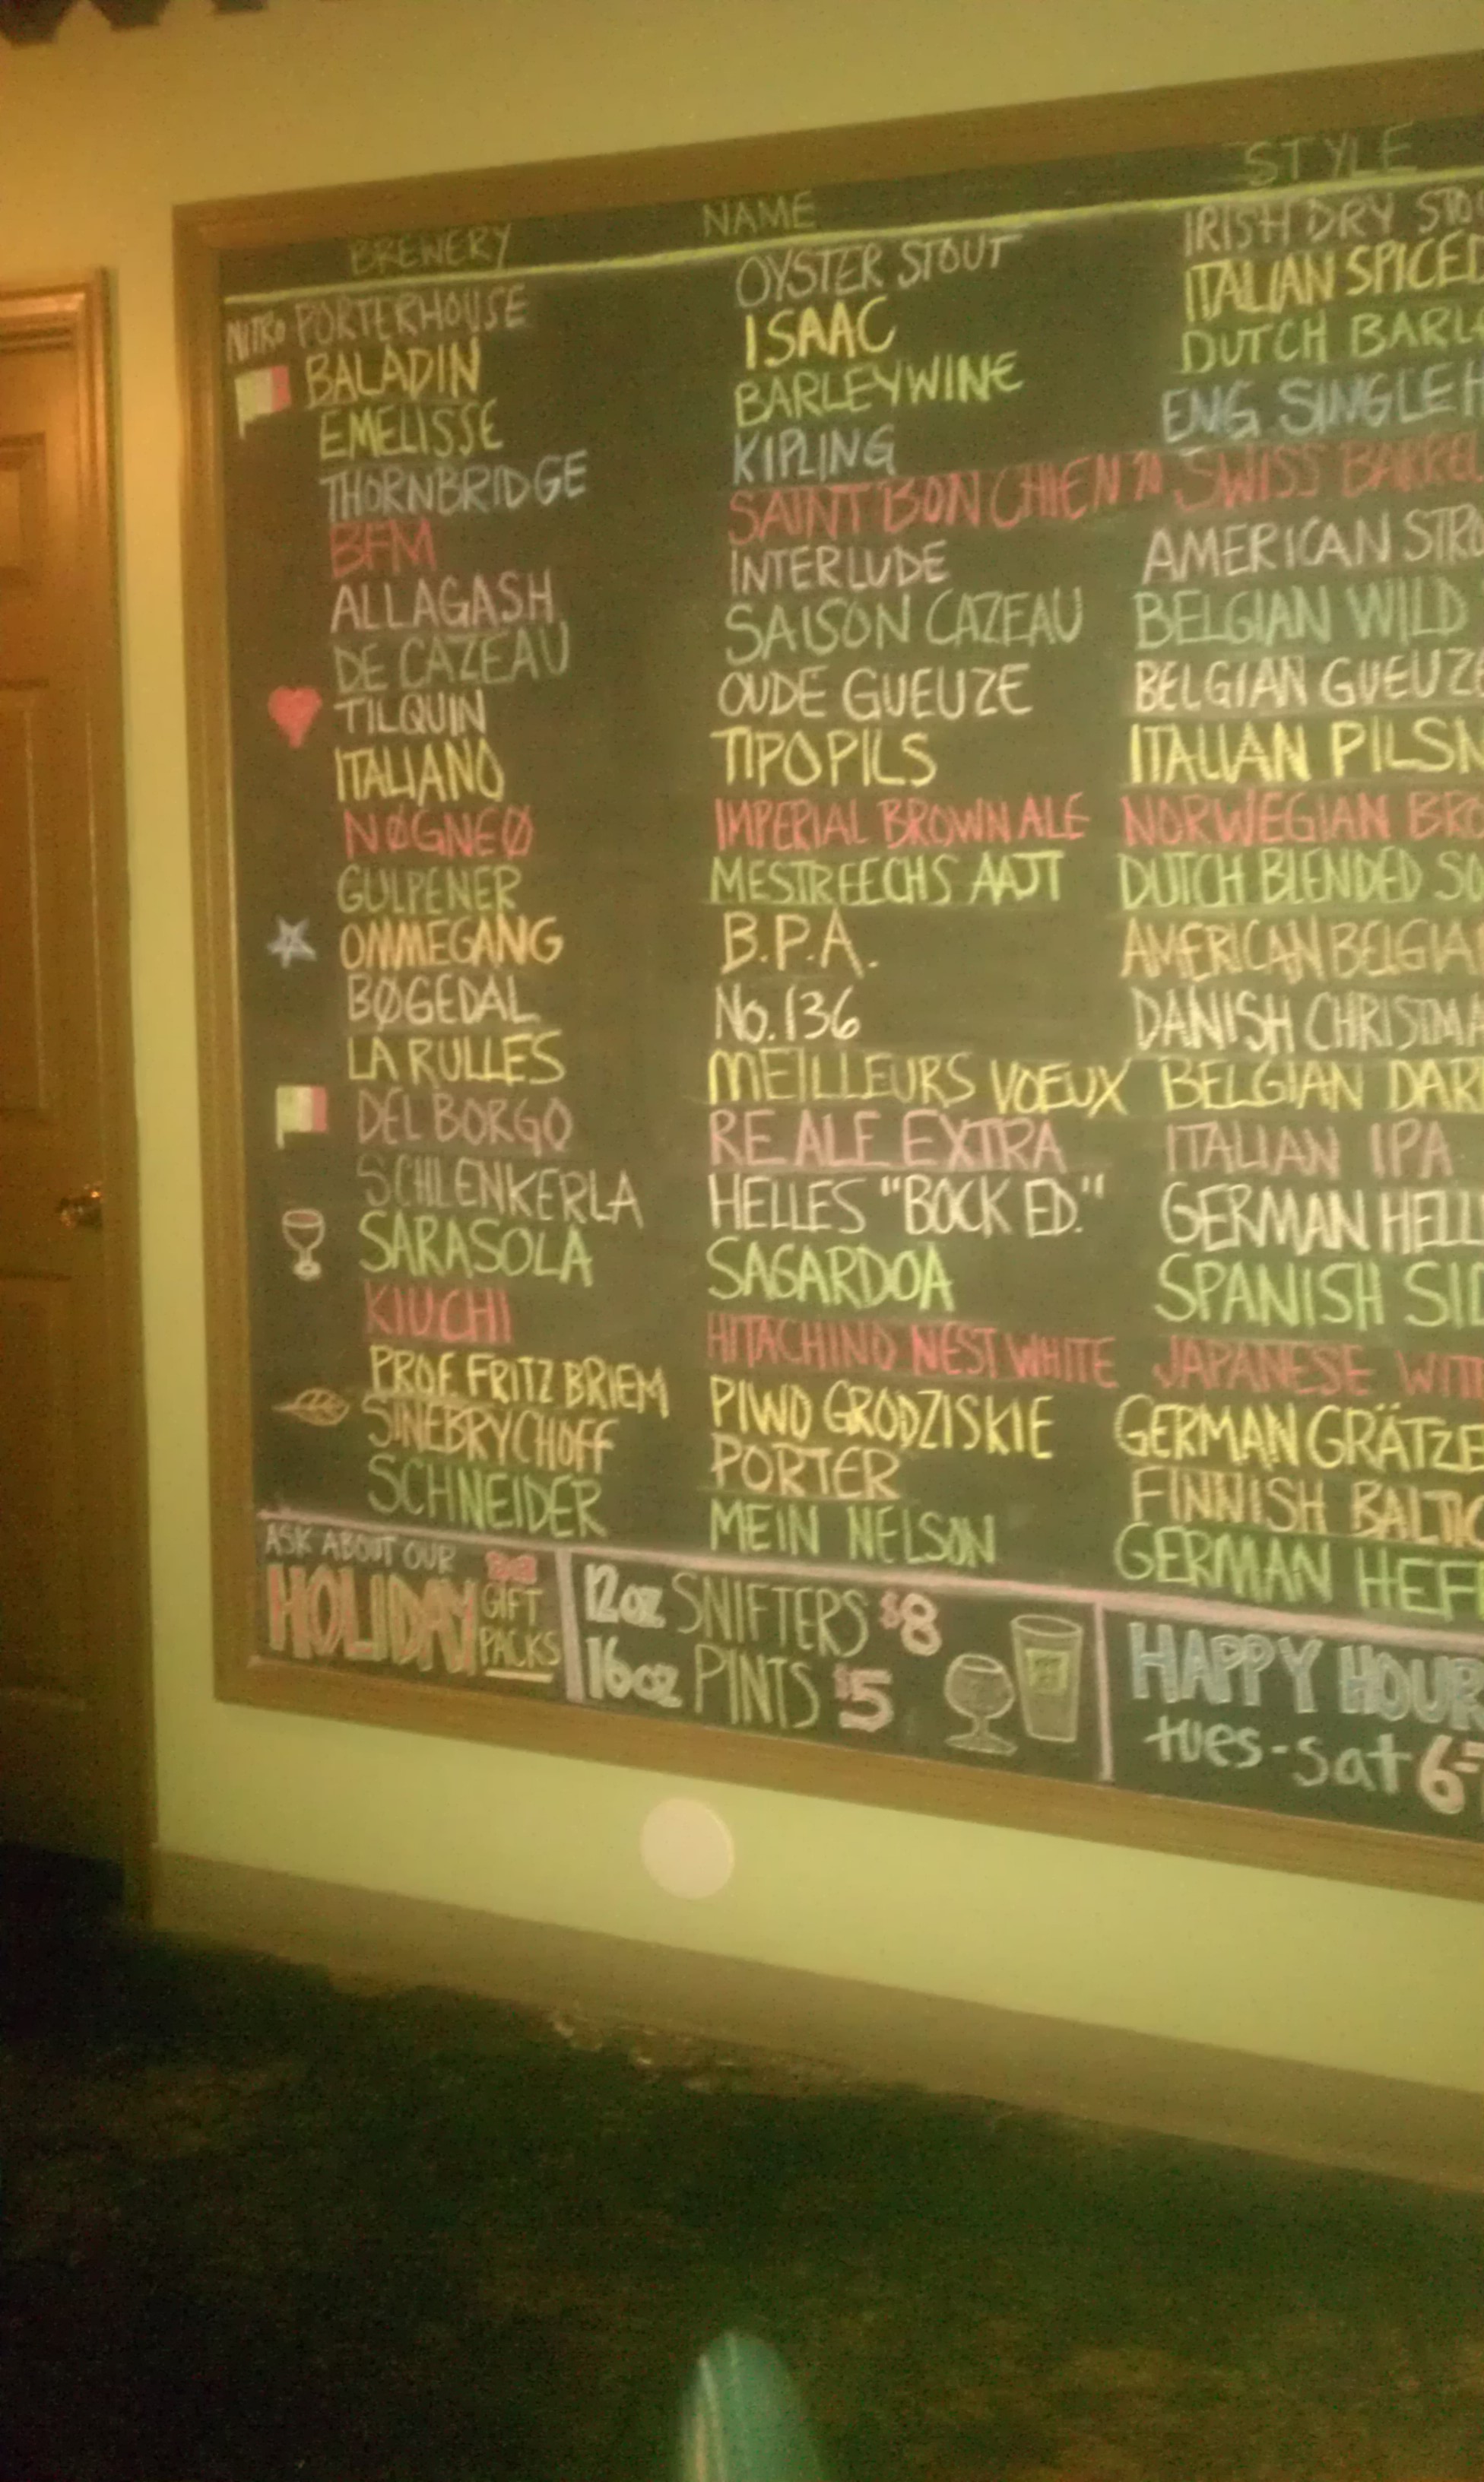 BREWERY NAME STYLE
NITRO PORTERHOUSE OYSTER STOUT IRISH DRY STO
BALADIN ISAAC ITALIAN SPICED
EMELISSE BARLEYWINE DUTCH BARL
THORNBRIDGE KIPLING ENG. SINGLE H
BFM SAINT BON CHIEN '10 SWISS BARREL
ALLAGASH INTERLUDE AMERICAN STRO
DE CAZEAU SAISON CAZEAU BELGIAN WILD
TILQUIN OUDE GUEUZE BELGIAN GUEUZE
ITALIANO TIPOPILS ITALIAN PILSN
NØGNE Ø IMPERIAL BROWN ALE NORWEGIAN BRO
GULPENER MESTREECHS AAJT DUTCH BLENDED SO
OMMEGANG B.P.A. AMERICAN BELGIA
BØGEDAL No. 136 DANISH CHRISTMA
LA RULLES MEILLEURS VOEUX BELGIAN DAR
DEL BORGO RE ALE EXTRA ITALIAN IPA
SCHLENKERLA HELLES "BOCK ED." GERMAN HELL
SARASOLA SAGARDOA SPANISH SID
KIUCHI HITACHINO NEST WHITE JAPANESE WIT
PROF. FRITZ BRIEM PIWO GRODZISKIE GERMAN GRÄTZE
SINEBRYCHOFF PORTER FINNISH BALTIC
SCHNEIDER MEIN NELSON GERMAN HEF
ASK ABOUT OUR
HOLIDAY GIFT PACKS
12oz SNIFTERS $8
16oz PINTS $5
HAPPY HOUR
tues-sat 6-